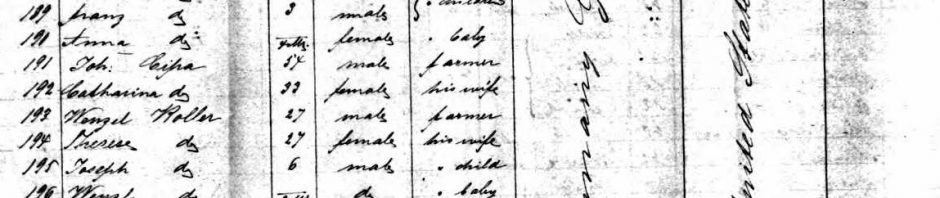 189 Franz do 3 male children
191 Anna do female " baby
191 Joh. Cipa 54 male farmer
192 Catharina do 33 female his wife
193 Wenzel Koller 27 male farmer
194 Therese do 27 female his wife
195 Joseph do 6 male " child
196 Wenzl do do " baby
Germany
United States